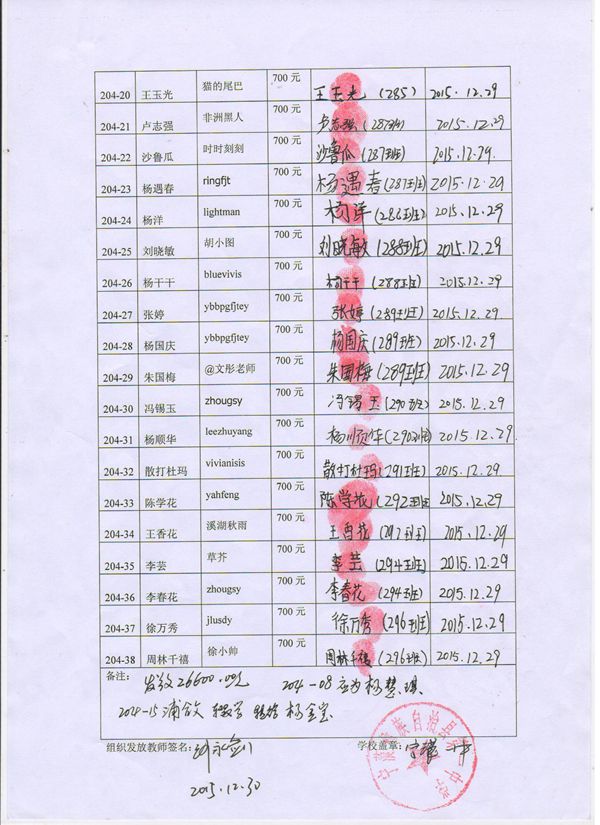 204-20 王玉光 猫的尾巴 700元 王玉光 (285) 2015.12.29
204-21 卢志强 非洲黑人 700元 卢志强 (287班) 2015.12.29
204-22 沙鲁瓜 时时刻刻 700元 沙鲁瓜 (287班) 2015.12.29
204-23 杨遇春 ringfjt 700元 杨遇春 (287班) 2015.12.29
204-24 杨洋 lightman 700元 杨洋 (286班) 2015.12.29
204-25 刘晓敏 胡小图 700元 刘晓敏 (288班) 2015.12.29
204-26 杨干干 bluevivis 700元 杨干干 (288班) 2015.12.29
204-27 张婷 ybbpgfjtey 700元 张婷 (289班) 2015.12.29
204-28 杨国庆 ybbpgfjtey 700元 杨国庆 (289班) 2015.12.29
204-29 朱国梅 @文彤老师 700元 朱国梅 (289班) 2015.12.29
204-30 冯锡玉 zhougsy 700元 冯锡玉 (290班) 2015.12.29
204-31 杨顺华 leezhuyang 700元 杨顺华 (290班) 2015.12.29
204-32 散打杜玛 vivianisis 700元 散打杜玛 (291班) 2015.12.29
204-33 陈学花 yahfeng 700元 陈学花 (292班) 2015.12.29
204-34 王香花 溪湖秋雨 700元 王香花 (292班) 2015.12.29
204-35 李芸 草芥 700元 李芸 (294班) 2015.12.29
204-36 李春花 zhougsy 700元 李春花 (294班) 2015.12.29
204-37 徐万秀 jlusdy 700元 徐万秀 (296班) 2015.12.29
204-38 周林千禧 徐小帅 700元 周林千禧 (296班) 2015.12.29
备注: 发放26600.00元 204-08应为杨慧琪
204-15 杨金宝
组织发放教师签名: 学校盖章: 宁蒗一中
2015.12.30